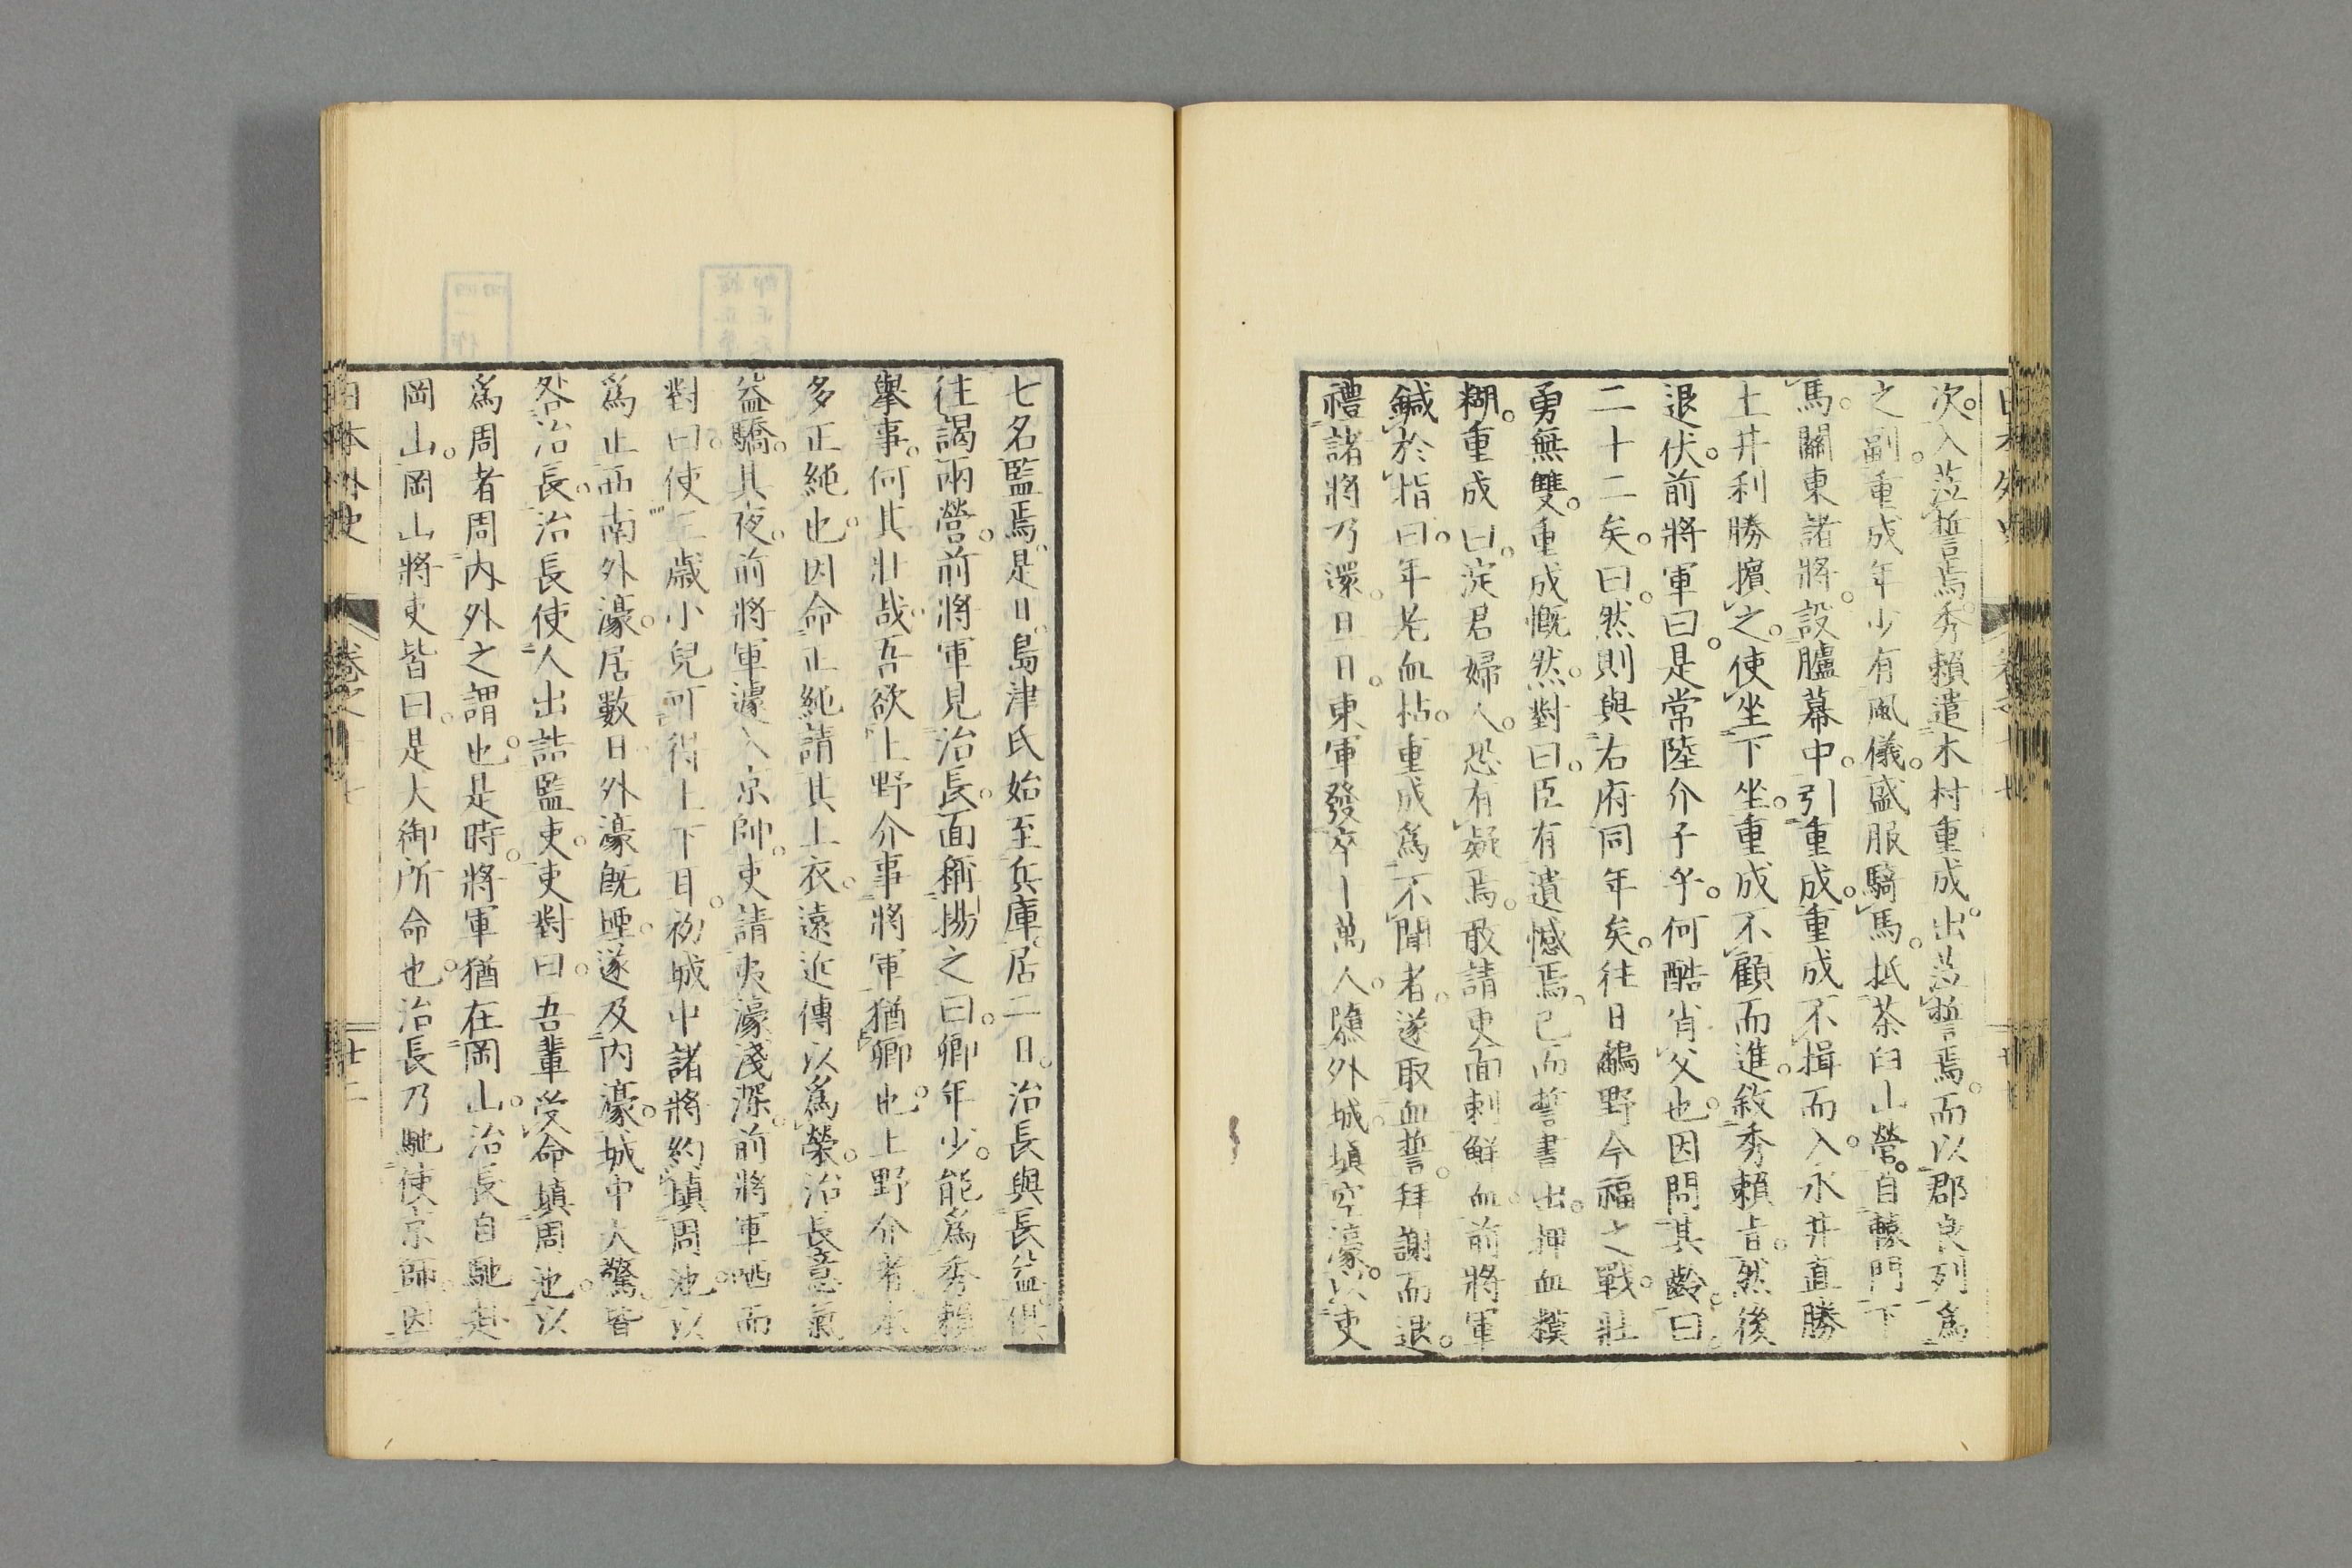 次。入涖誓焉。秀賴遣木村重成。出涖誓焉。而以郡良列爲
之副。重成年少有風儀。盛服騎馬。抵茶臼山營。自轅門下
馬。關東諸將。設臚幕中。引重成。重成不揖而入。永井直勝
土井利勝擯之。使坐下坐。重成不顧而進。敘秀賴旨。然後
退伏。前將軍曰。是常陸介子乎。何酷肖父也。因問其齡。曰。
二十二矣。曰。然則與右府同年矣。往日鷸野今福之戰。壯
勇無雙。重成慨然。對曰。臣有遺憾焉。已而誓書出。押血糢
糊。重成曰。淀君婦人。恐有疑焉。敢請更面刺鮮血。前將軍
鍼於指。曰。年老血枯。重成爲不聞者。遂取血誓。拜謝而退。
禮諸將乃還。旦日。東軍發卒十萬人。隳外城。塡空濠。以吏
七名監焉。是日。島津氏始至兵庫。居二日。治長與長益。俱
往謁兩營。前將軍見治長。面稱揚之曰。卿年少。能爲秀賴
擧事。何其壯哉。吾欲上野介事將軍猶卿也。上野介者。本
多正純也。因命正純請其上衣。遠近傳以爲榮。治長意氣
益驕。其夜。前將軍遽入京師。吏請夷濠淺深。前將軍哂而
對曰。使三歲小兒可得上下耳。初城中諸將約塡周池。以
爲止西南外濠。居數日外濠既堙。遂及內濠。城中大驚。皆
咎治長。治長使人出詰監吏。吏對曰。吾輩受命塡周池。以
爲周者周內外之謂也。是時。將軍猶在岡山。治長自馳赴
岡山。岡山將吏皆曰。是大御所命也。治長乃馳使京師。因
日本外史
卷之